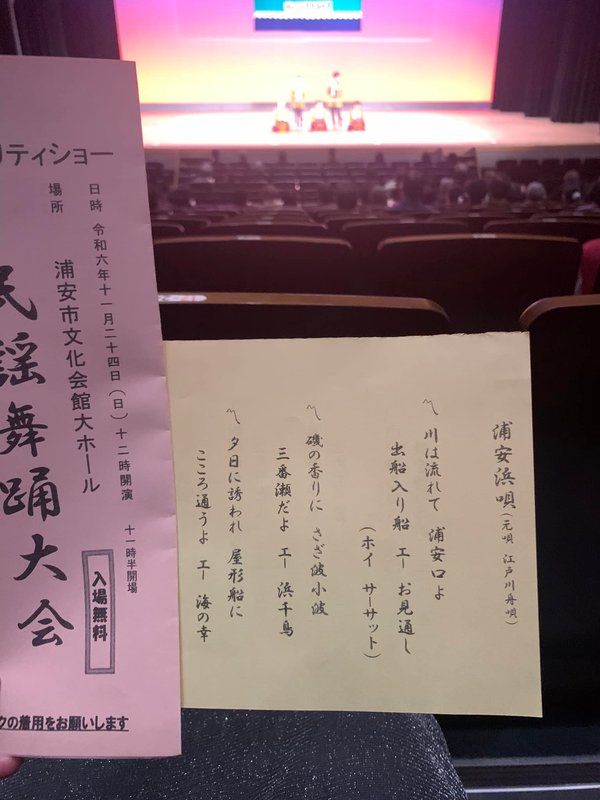 リティショー
日時 令和六年十一月二十四日(日)十二時開演 十一時半開場
場所 浦安市文化会館大ホール
民謡舞踊大会
入場無料
クの着用をお願いします
浦安浜唄(元唄 江戸川舟唄)
〽川は流れて 浦安口よ
出船入り船 エー お見通し
(ホイ サーサット)
〽磯の香りに さざ波小波
三番瀬だよ エー 浜千鳥
〽夕日に誘われ 屋形船に
こころ通うよ エー 海の幸